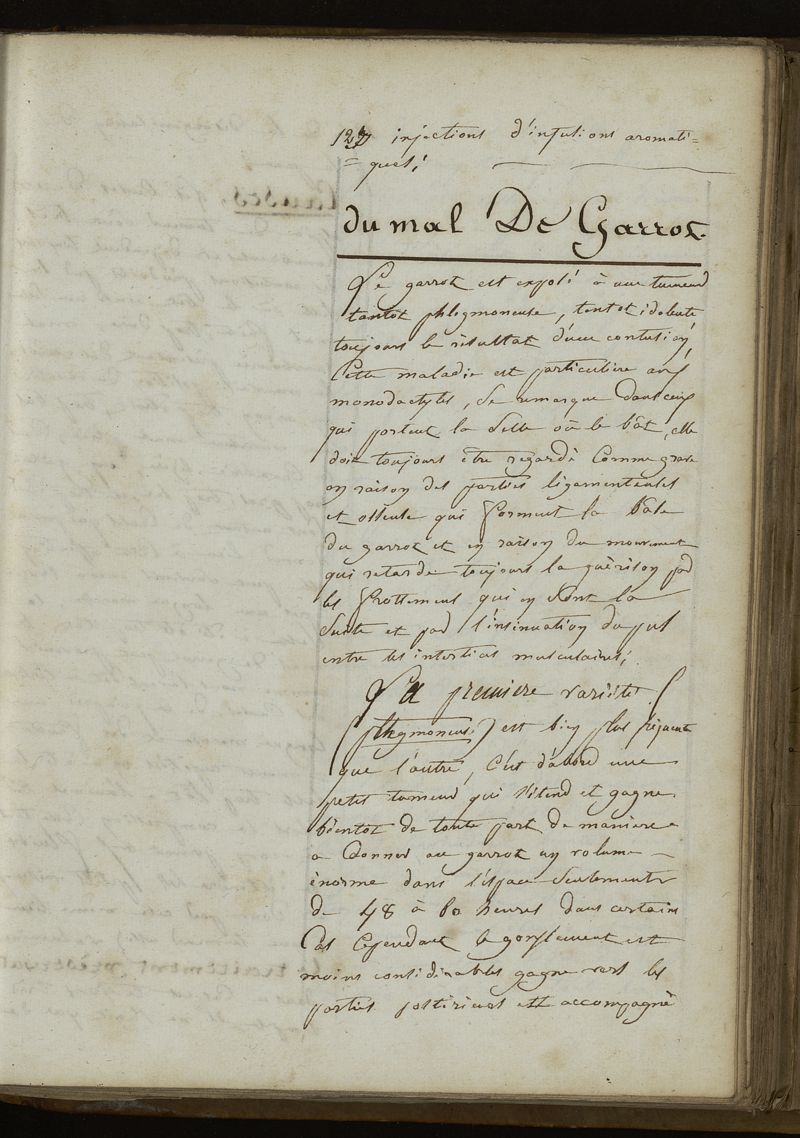 127 injections d'infusions aromati=
= ques,
du mal De Garrot.
Le garrot est exposé à une tumeur
tantot phlegmoneuse, tantot idolente
toujours le résultat d'une contusion,
Cette maladie est particulière aux
monodactyles, se remarque dans ceux
qui portent la selle où le bât, elle
doit toujours être regardé comme grave
en raison des parties ligamenteuses
et osseuse qui forment la base
du garrot et en raison du mouvement
qui retarde toujours la guèrison par
les frottement qui en sont la
suite et par l'insinuation du pus
entre les interstices musculaires,
La première varièté (
phlegmoneuse) est bien plus fréquente
que l'autre, C'est d'abord une
petite tumeur qui s'étend et gagne
bientot de toute part de maniere
a donner au garrot un volume
énorme dans l'éspace seulement
de 48 à 60 heures dans certains
cas Cependant le gonflement est
moins considérables gagne vers les
parties postérieures est accompagné